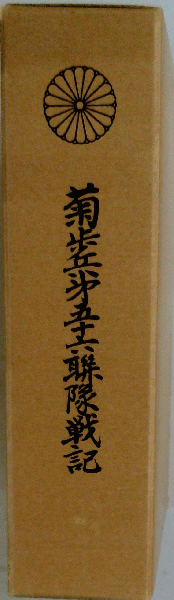 菊歩兵第五十六聯隊戦記